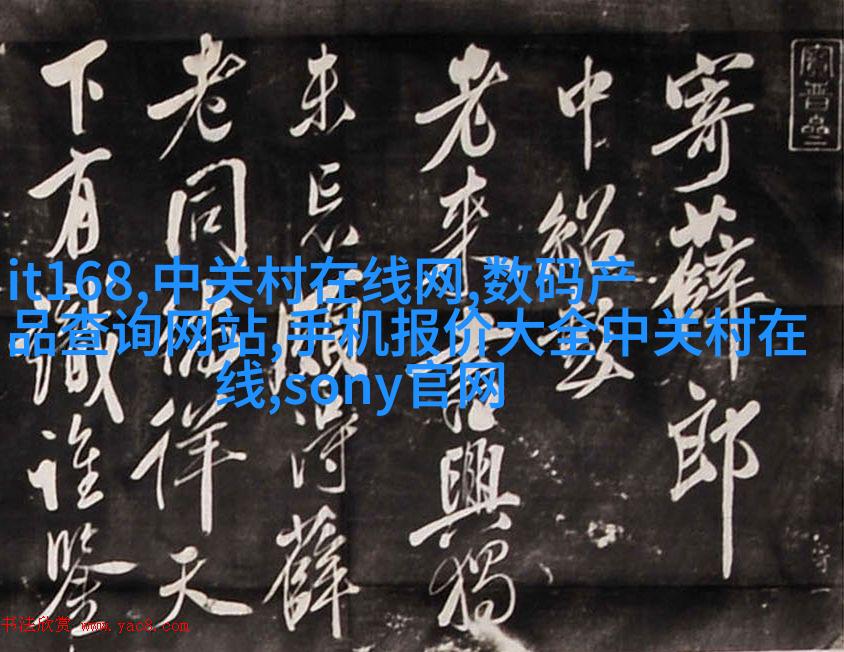 寄薛郎
中紹彭
老来書興獨
未忘頗得薛
老同徜徉天
下有識誰鑒
it168,中关村在线网,数码产
品查询网站,手机报价大全中关村在
线,sony官网
书法欣赏 www.yac8.com